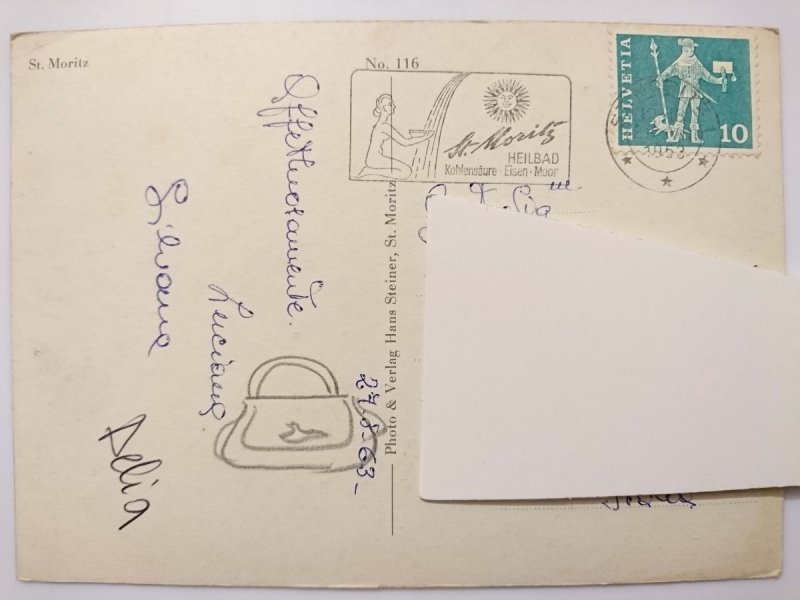 St. Moritz
No. 116
HELVETIA
10
St. Moritz
HEILBAD
Kohlensäure · Eisen · Moor
Photo & Verlag Hans Steiner, St. Moritz
Affettuosamente.
Luciana
Silvana
Delia
27-8-63-